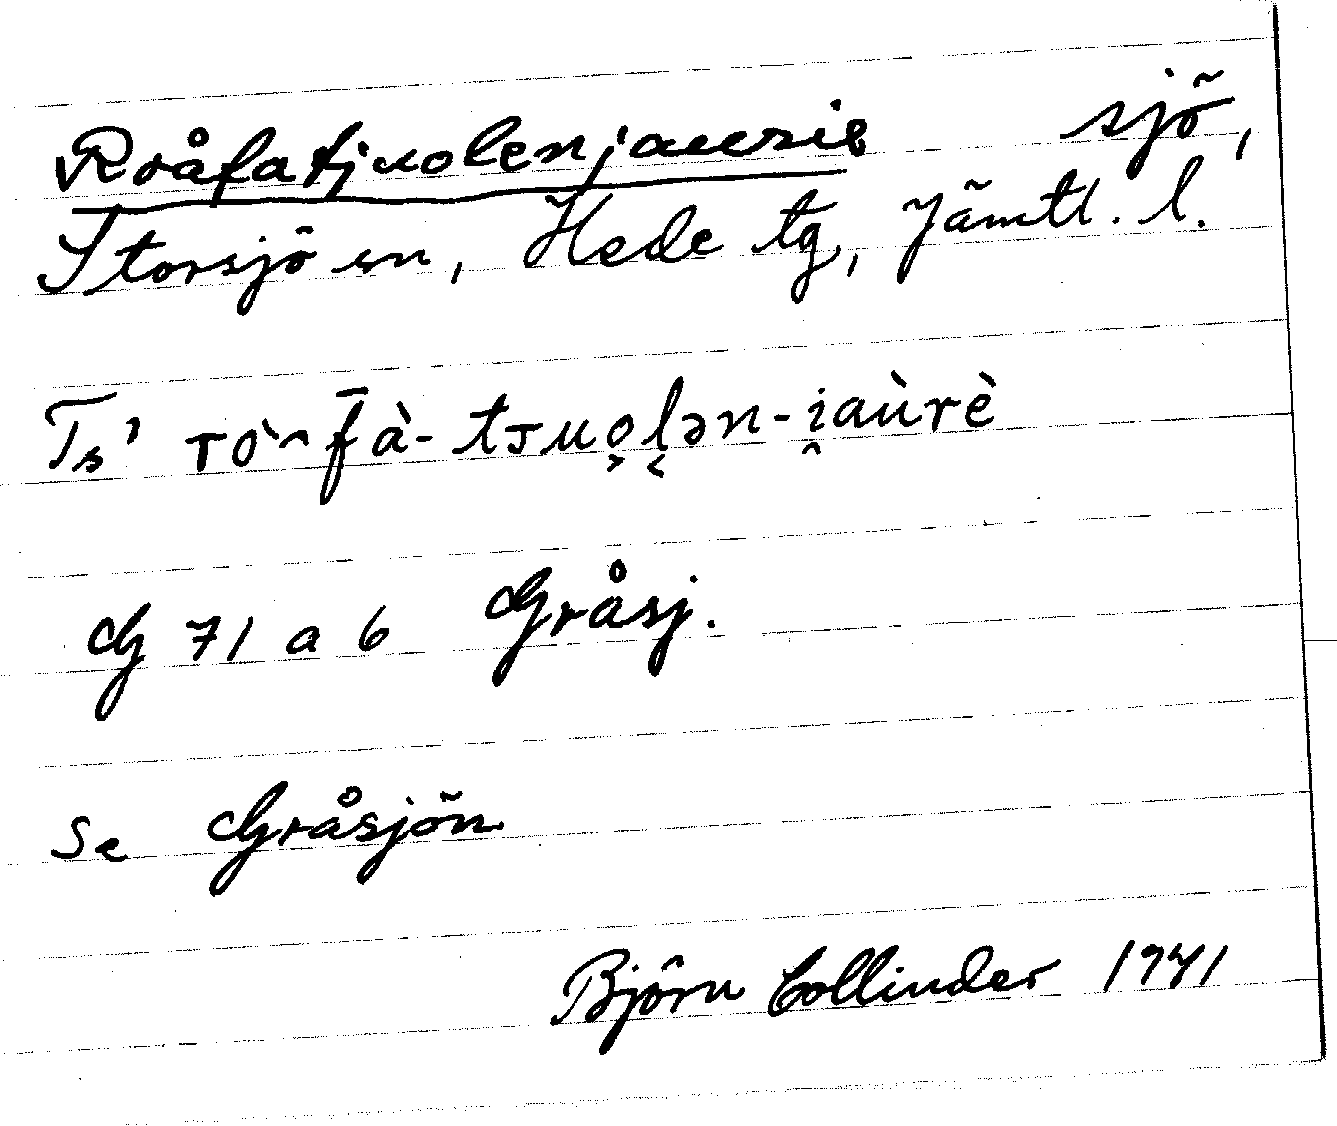 Roåfatjuolenjaurie sjö,
Storsjö sn, Hede tg, Jämtl. l.
Ts' rò̂f̄à-tsuo̭l̬ən-i̯aùrè
G 71 a 6 Gråsj.
Se Gråsjön.
Björn Collinder 1941